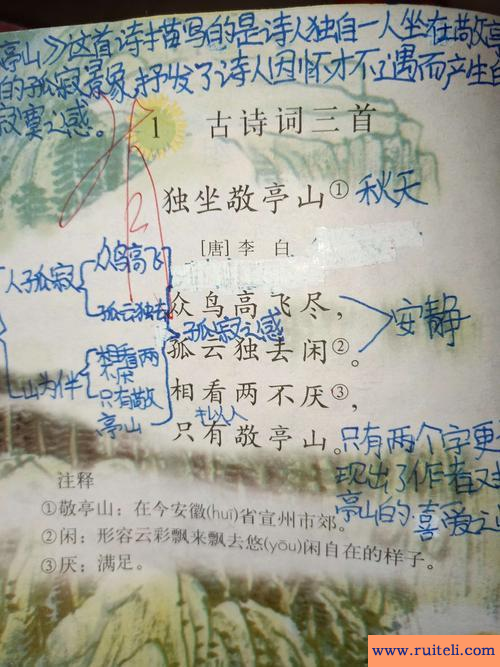 亭山》这首诗描写的是诗人独自一人坐在敬亭
的孤寂景象,抒发了诗人因怀才不遇而产生
寂寞之感。
1 古诗词三首
独坐敬亭山① 秋天
[唐] 李 白
人孤寂 众鸟高飞 孤云独去
众鸟高飞尽,
孤云独去闲②。
安静
孤寂之感
山为伴 相看两不厌 只有敬亭山
相看两不厌③,
拟人
只有敬亭山。
只有两个字更
现出了作者对
亭山的喜爱之
注释
①敬亭山:在今安徽(huī)省宣州市郊。
②闲:形容云彩飘来飘去悠(yōu)闲自在的样子。
③厌:满足。
www.ruiteli.com